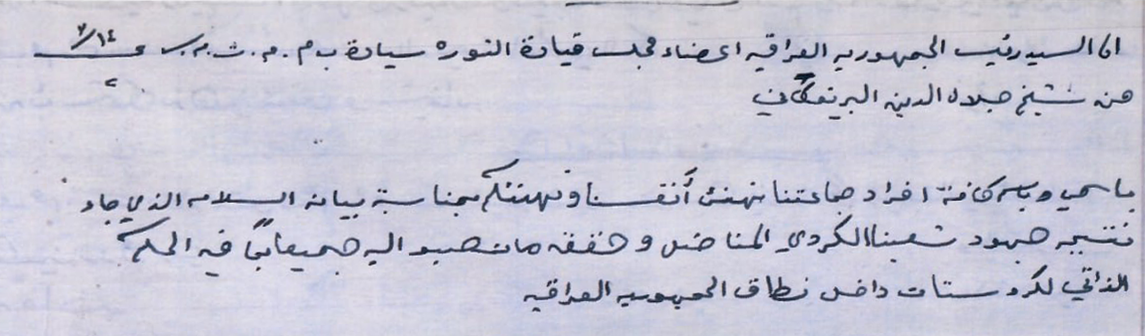 الى السيد رئيس الجمهوريه العراقيه اعضاء مجلس قيادة الثوره سيادة ب م. م. ث. م. ٣/١٤
من شيخ جلال الدين البريفكاني
باسمي وباسم كافة افراد جماعتنا نهنئ أنفسنا ونهنئكم بمناسبة بيان السلام الذي جاء
نتيجه جهود شعبنا الكردي المناضل وحققه ما نصبو اليه جميعاً في الحكم
الذاتي لكردستان داخل نطاق الجمهوريه العراقيه